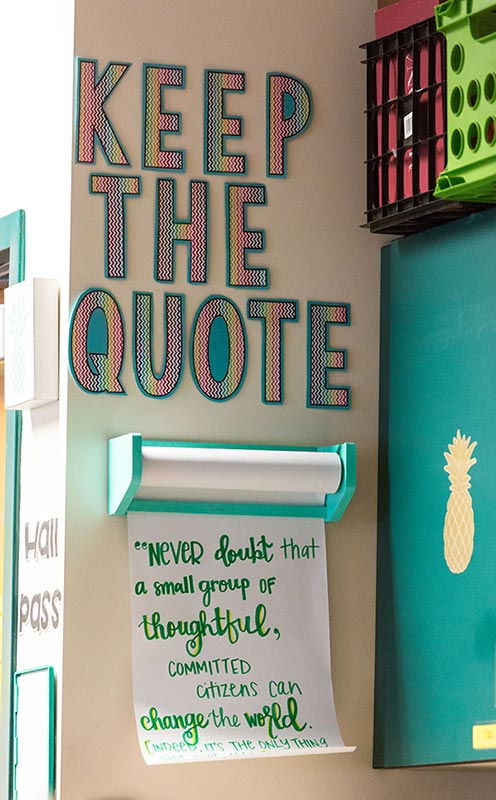 KEEP
THE
QUOTE
Hall
pass
"NEVER doubt that
a small group OF
thoughtful,
COMMITTED
citizens can
change the world.
[INDEED, IT'S THE ONLY THING